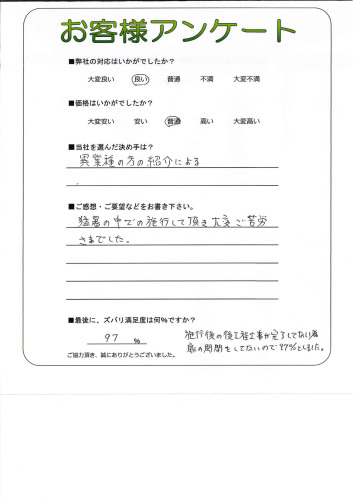 お客様アンケート
■弊社の対応はいかがでしたか？
大変良い 良い 普通 不満 大変不満
■価格はいかがでしたか？
大変安い 安い 普通 高い 大変高い
■当社を選んだ決め手は？
異業種の方の紹介による
■ご感想・ご要望などをお書き下さい。
猛暑の中での施行して頂き大変ご苦労
さまでした。
■最後に、ズバリ満足度は何%ですか？
97 %
施行後の後工程工事が完了してない為
扉の開閉をしてないので97%としました。
ご協力頂き、誠にありがとうございました。